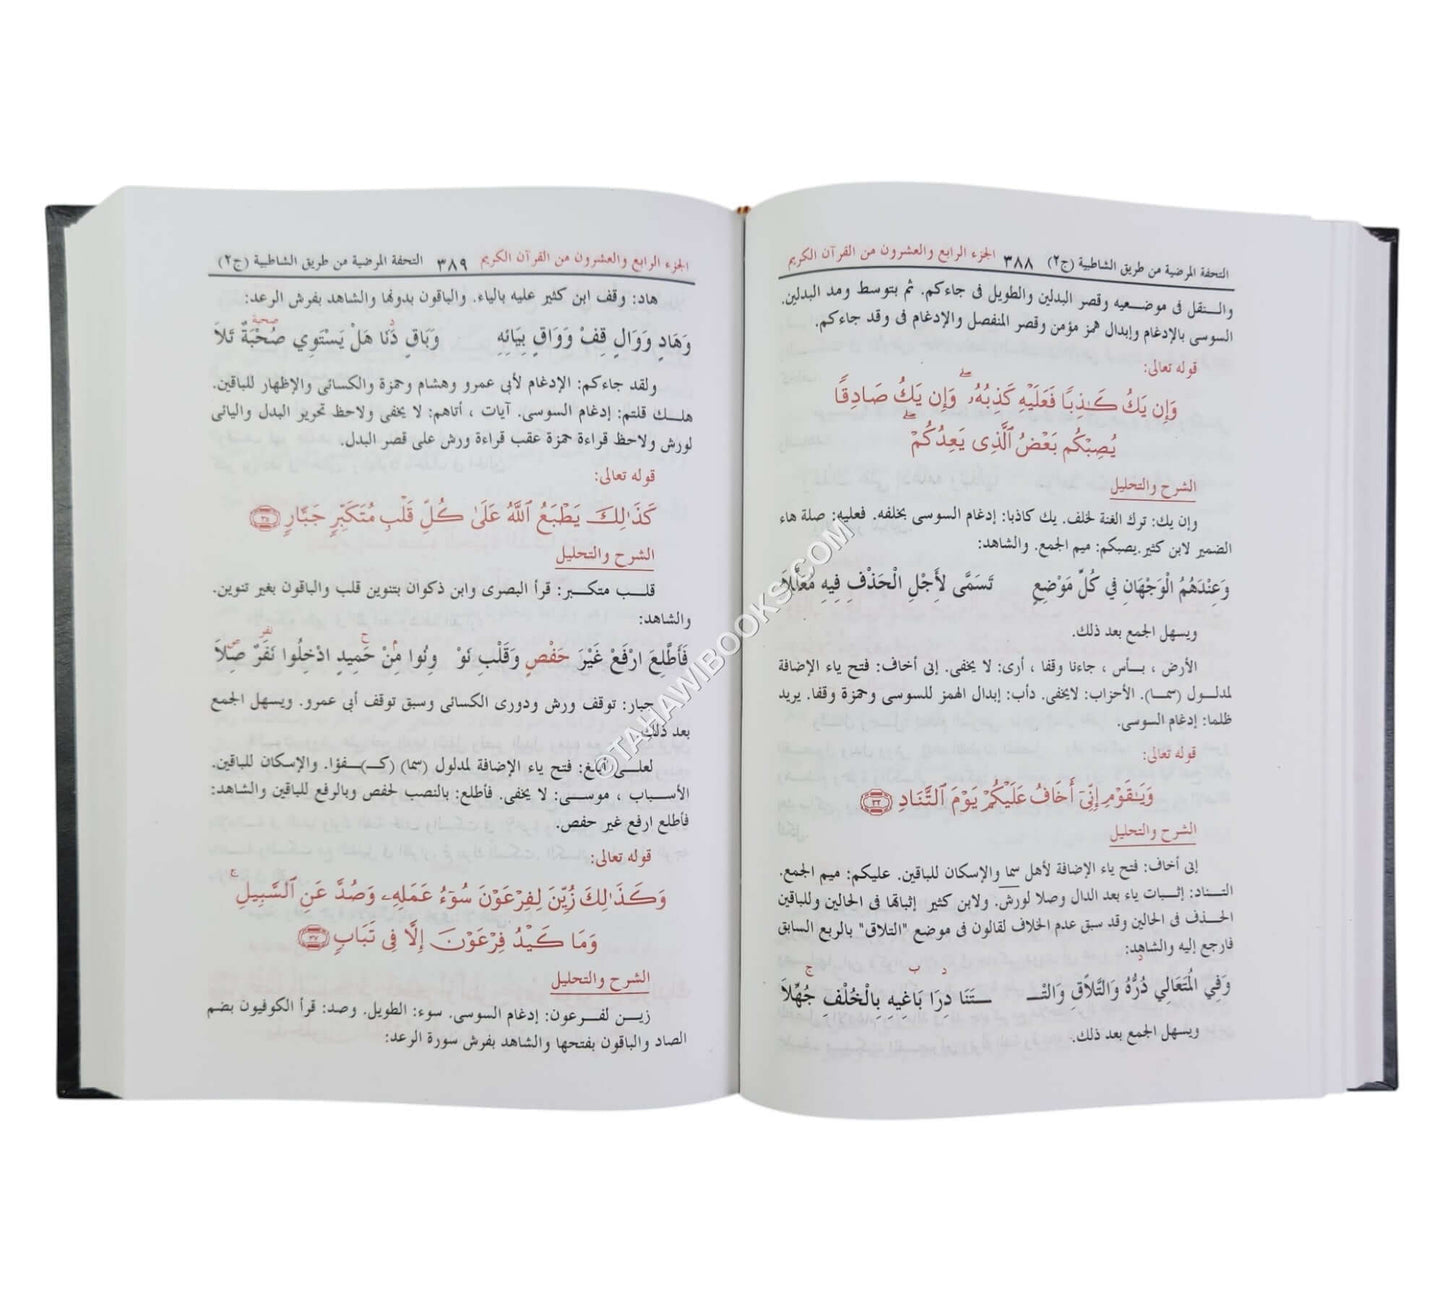 التحفة المرضية من طريق الشاطبية (ج٢) ٣٨٨ الجزء الرابع والعشرون من القرآن الكريم
والـــنقل فى موضـــعيه وقصر البدلين والطويل فى جاءكم. ثم بتوسط ومد البدلين.
السوسى بالإدغام وإبدال همز مؤمن وقصر المنفصل والإدغام فى وقد جاءكم.
قوله تعالى:
وَإِن يَكُ كَـٰذِبًا فَعَلَيْهِ كَذِبُهُۥ ۖ وَإِن يَكُ صَادِقًا
يُصِبْكُم بَعْضُ ٱلَّذِى يَعِدُكُمْ ۖ
الشرح والتحليل
وإن يك: ترك الغنة لخلف. يك كاذبا: إدغام السوسى بخلفه. فعليه: صلة هاء
الضمير لابن كثير.يصبكم: ميم الجمع. والشاهد:
وَعِنْدَهُمُ الْوَجْهَانِ فِي كُلِّ مَوْضِعٍ تَسَمَّى لِأَجْلِ الْحَذْفِ فِيهِ مُعَلَّلاَ
ويسهل الجمع بعد ذلك.
الأرض ، بـــأس ، جاءنا وقفا ، أرى: لا يخفى. إنى أخاف: فتح ياء الإضافة
لمدلـول (سمـــا). الأحزاب: لايخفى. دأب: إبدال الهمز للسوسى وحمزة وقفا. يريد
ظلما: إدغام السوسى.
قوله تعالى:
وَيَـٰقَوْمِ إِنِّىٓ أَخَافُ عَلَيْكُمْ يَوْمَ ٱلتَّنَادِ ٣٢
الشرح والتحليل
إنى أخاف: فتح ياء الإضافة لأهل سما والإسكان للباقين. عليكم: ميم الجمع.
التـناد: إثـبات ياء بعد الدال وصلا لورش. ولابن كثير إثباتها فى الحالين وللباقين
الحـذف فى الحالين وقد سبق عدم الخلاف لقالون فى موضع "التلاق" بالربع السابق
فارجع إليه والشاهد:
وَفِي الْمُتَعَالِي دُرُّهُ وَالتَّلاَقِ وَالتْـــ ـــتَنَا دِرَا بَاغِيهِ بِالْخُلْفِ جُهَّلاَ
ويسهل الجمع بعد ذلك.
الجزء الرابع والعشرون من القرآن الكريم ٣٨٩ التحفة المرضية من طريق الشاطبية (ج٢)
هاد: وقف ابن كثير عليه بالياء. والباقون بدونها والشاهد بفرش الرعد:
وَهَادٍ وَوَالٍ قِفْ وَوَاقٍ بِيَائِهِ وَبَاقٍ دَنَا هَلْ يَسْتَوِي صُحْبَةٌ تَلاَ
ولقد جاءكم: الإدغام لأبى عمرو وهشام وحمزة والكسائى والإظهار للباقين.
هلـــك قلتم: إدغام السوسى. آيات ، أتاهم: لا يخفى ولاحظ تحرير البدل واليائى
لورش ولاحظ قراءة حمزة عقب قراءة ورش على قصر البدل.
قوله تعالى:
كَذَٰلِكَ يَطْبَعُ ٱللَّهُ عَلَىٰ كُلِّ قَلْبِ مُتَكَبِّرٍ جَبَّارٍ ٣٥
الشرح والتحليل
قلـــب متكـــبر: قرأ البصرى وابن ذكوان بتنوين قلب والباقون بغير تنوين.
والشاهد:
فَأَطَّلِعَ ارْفَعْ غَيْرَ حَفْصٍ وَقَلْبِ نَوْ وِنُوا مِنْ حَمِيدٍ ادْخِلُوا نَفَرٌ صِلاَ
جبار: توقف ورش ودورى الكسائى وسبق توقف أبى عمرو. ويسهل الجمع
بعد ذلك.
لعلـــى أبلغ: فتح ياء الإضافة لمدلول (سما) (كـــ)ـــفؤا. والإسكان للباقين.
الأسـباب ، موســـى: لا يخفى. فأطلع: بالنصب لحفص وبالرفع للباقين والشاهد:
فأطلع ارفع غير حفص.
قوله تعالى:
وَكَذَٰلِكَ زُيِّنَ لِفِرْعَوْنَ سُوٓءُ عَمَلِهِۦ وَصُدَّ عَنِ ٱلسَّبِيلِ ۚ
وَمَا كَيْدُ فِرْعَوْنَ إِلَّا فِى تَبَابٍ ٣٧
الشرح والتحليل
زيـــن لفـــرعون: إدغام السوسى. سوء: الطويل. وصد: قرأ الكوفيون بضم
الصاد والباقون بفتحها والشاهد بفرش سورة الرعد:
©TAHAWIBOOKS.COM